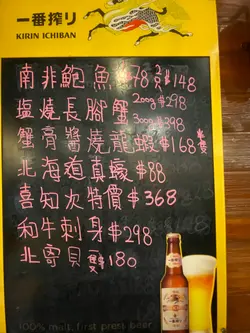 一番搾り
KIRIN ICHIBAN
南非鮑魚$78 2隻$148
塩燒長腳蟹200g $298
300g $298
蟹膏醬燒龍蝦$168 半隻
北海道真蠔$88
喜知次特價$368
和牛刺身$298
北寄貝 $180
100% malt, first press beer